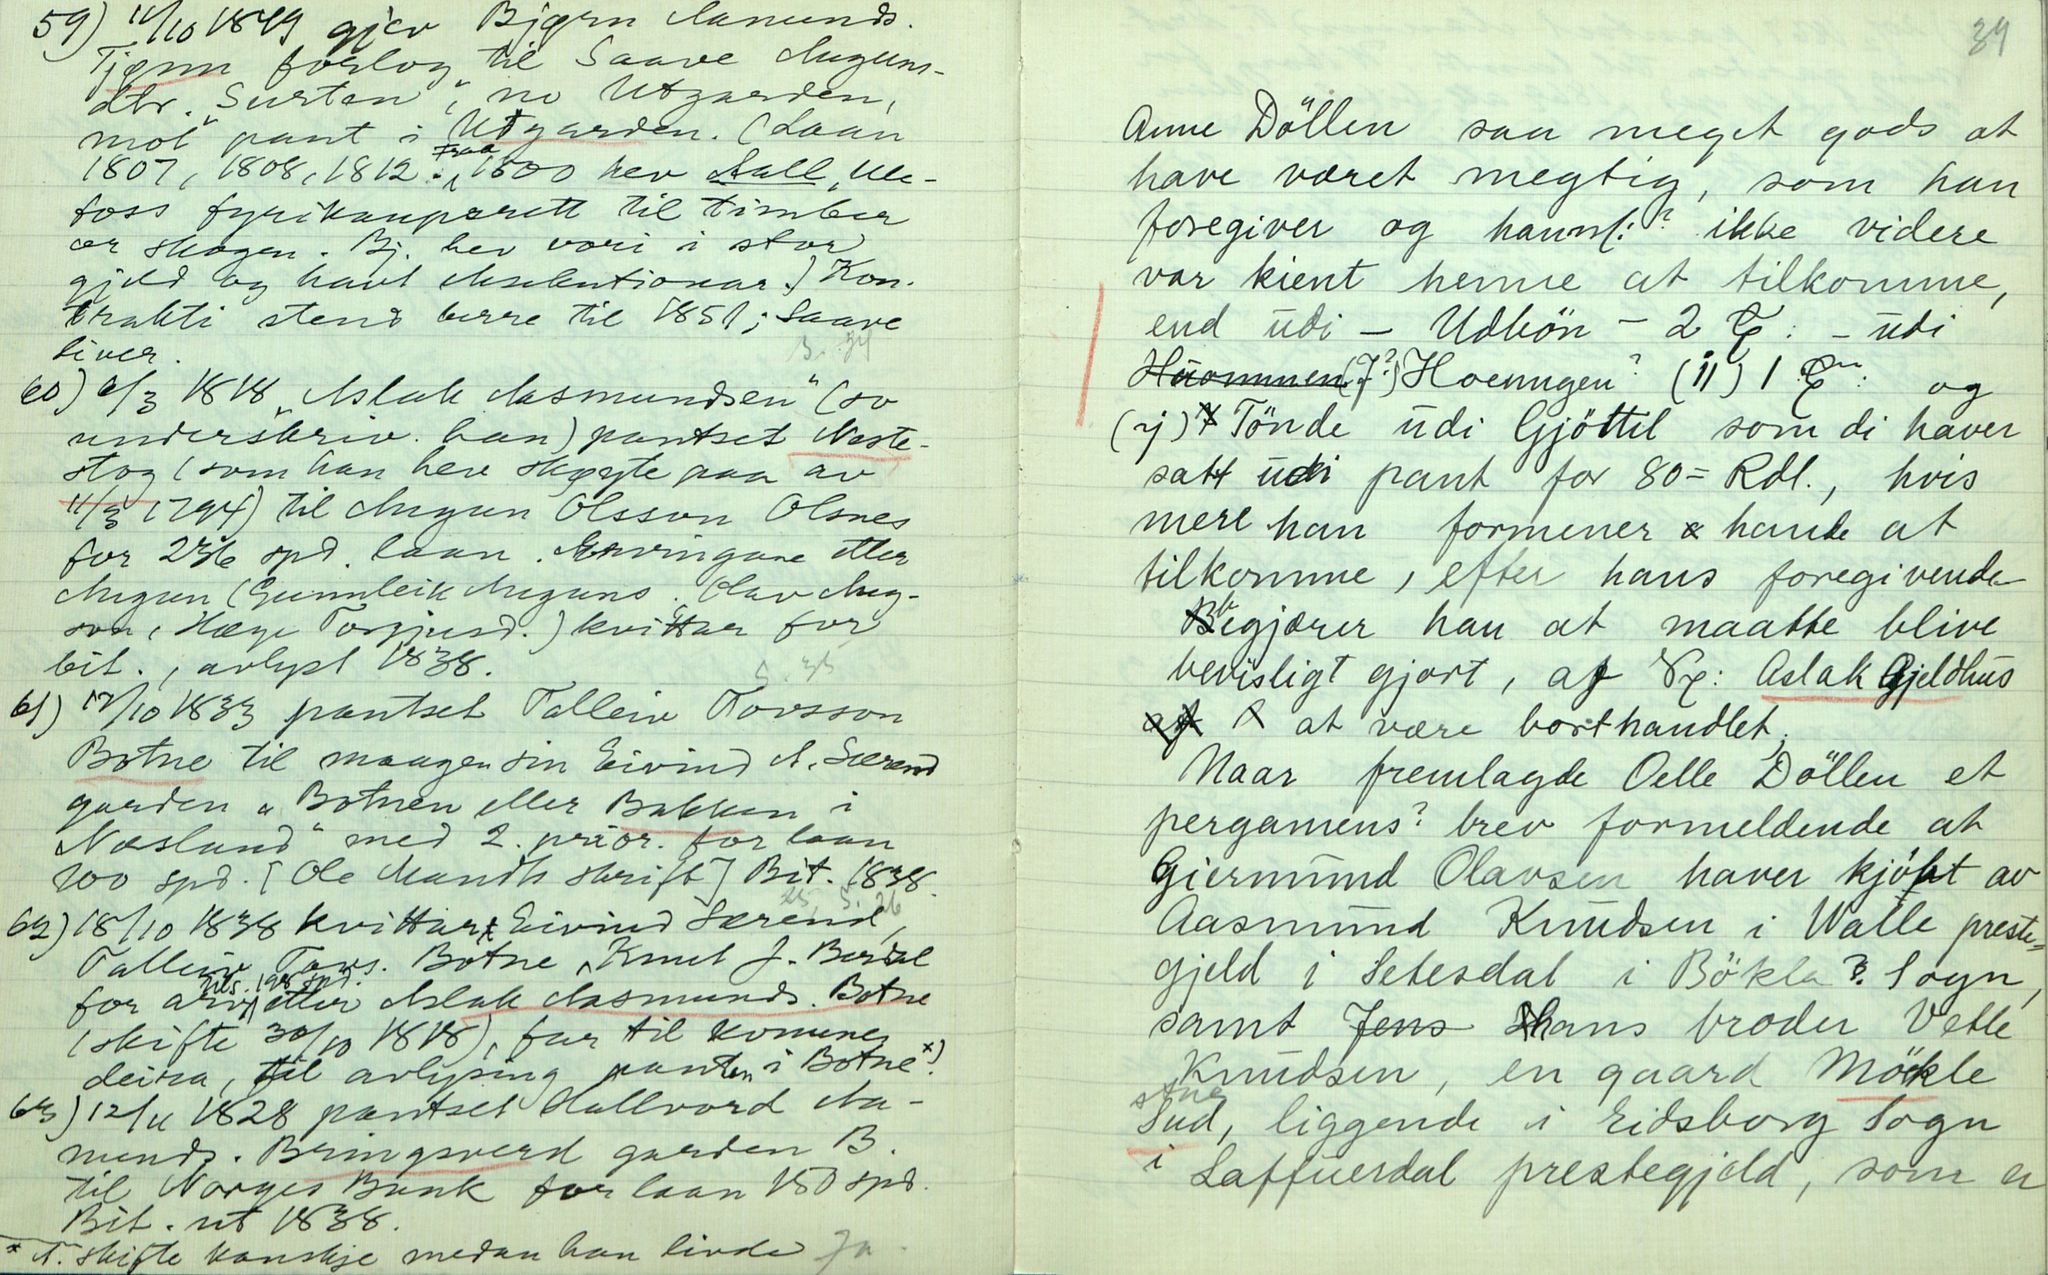 59) 11/10 1849 gjev Bjørn Aamunds.
Tjønn forlog til Saave Auguns-
dtr. "Surten", no Utgarden,
mot pant i Utgarden. (Laan
1807, 1808, 1812. Fraa 1800 hev Aall, Ule-
foss fyrikauparett til timber
or skogen. Bj. hev vori i stor
gjeld og havt Auktionar.) Kon-
trakti stend berre til 1851; Saave
liver.
B. 34
60) 6/3 1818 "Aslak Aasmundsen" (so
underskriv. han) pantset Neste-
stog (som han hev skøyte paa av
11/3 1794) til Augun Olsson Olsnes
for 236 spd. laan. Ervingane etter
Augun (Gunnleik Auguns. Olav Aug-
son, Hæge Torgjusd.) kvittar for
bit., avlyst 1838.
S. 35
61) 17/10 1833 pantset Talleiv Tovsson
Botne til maagen sin Eivind A. Særend
garden "Botnen eller Bakken i
Næsland" med 2. prior. for laan
200 spd. [Ole Mandts skrift] Bit. 1838.
25, S. 26
62) 18/10 1838 kvittar Eivind Særend,
Talleiv Tovs. Botne, Knut J. Berdal
for arv etter Aslak Aasmunds. Botne
tils. 198 spd.
(skifte 30/10 1818), far til konune
deira, til avlysing panten i Botne x).
63) 12/11 1828 pantset Hallvord Aa-
munds. Bringsverd garden B.
til Norges Bank for laan 150 spd.
Bit. ut 1838.
* A. skifte kanskje medan han livde Ja.
34
Anne Döllen saa meget gods at
have været megtig, som han
foregiver og hannl:? ikke videre
var kient henne at tilkomme,
end udi – Udbön – 2 : – udi
Huommen (J?) Hoenngen? (11) 1 : og
(ɿj) Tönde udi Gjöttil som di haver
satt udi pant for 80= Rdl., hvis
mere han formener hande at
tilkomme, efter hans foregivende
Begjærer han at maatte blive
bevisligt gjort, af : Aslak Gjeldhus
af at være borthandlet.
Naar fremlagde Oelle Döllen et
pergamens? brev formeldende at
Giermund Olavsen haver kjöht av
Aasmund Knudsen i Walle preste-
gjeld i Setesdal i Bökla? Sogn,
samt Jens hans broder Vetle
Knudsen, en gaard Mökle
stue
Sud, liggende i Eidsborg Sogn
i Laffuerdal prestegjeld, som er